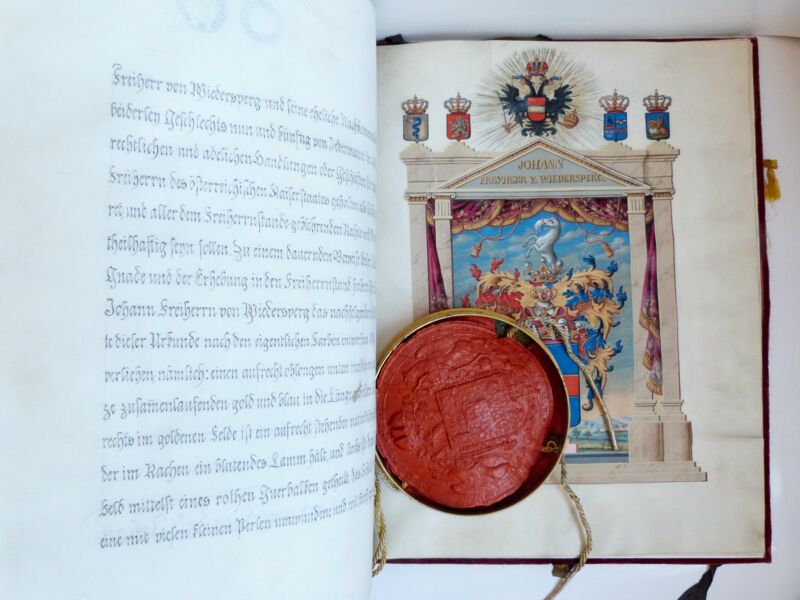 Freiherr von Wiedersperg und seine eheliche
beiderley Geschlechts nun und künftig von Jedermann
rechtlichen und adelichen Handlungen oder
Freiherrn des österreichischen Kaiserstaates gehalten
ret, und aller dem Freiherrnstande gebührenden Rechte
theilhaftig seyn sollen. Zu einem dauernden Beweise
Gnade und der Erhebung in den Freiherrnstand
Johann Freiherrn von Wiedersperg das
te dieser Urkunde nach den eigentlichen Farben
verliehen, nämlich: einen aufrecht oblongen unten
ze zusam̄enlaufenden gold und blau in die Länge
rechts im goldenen Felde ist ein aufrecht stehender
der im Rachen ein blutendes Lamm hält, und
Feld mittelst eines rothen Querbalken getheilt
eine mit vielen kleinen Perlen umwundene und mit
JOHANN
FREYHERR V. WIEDERSPERG.